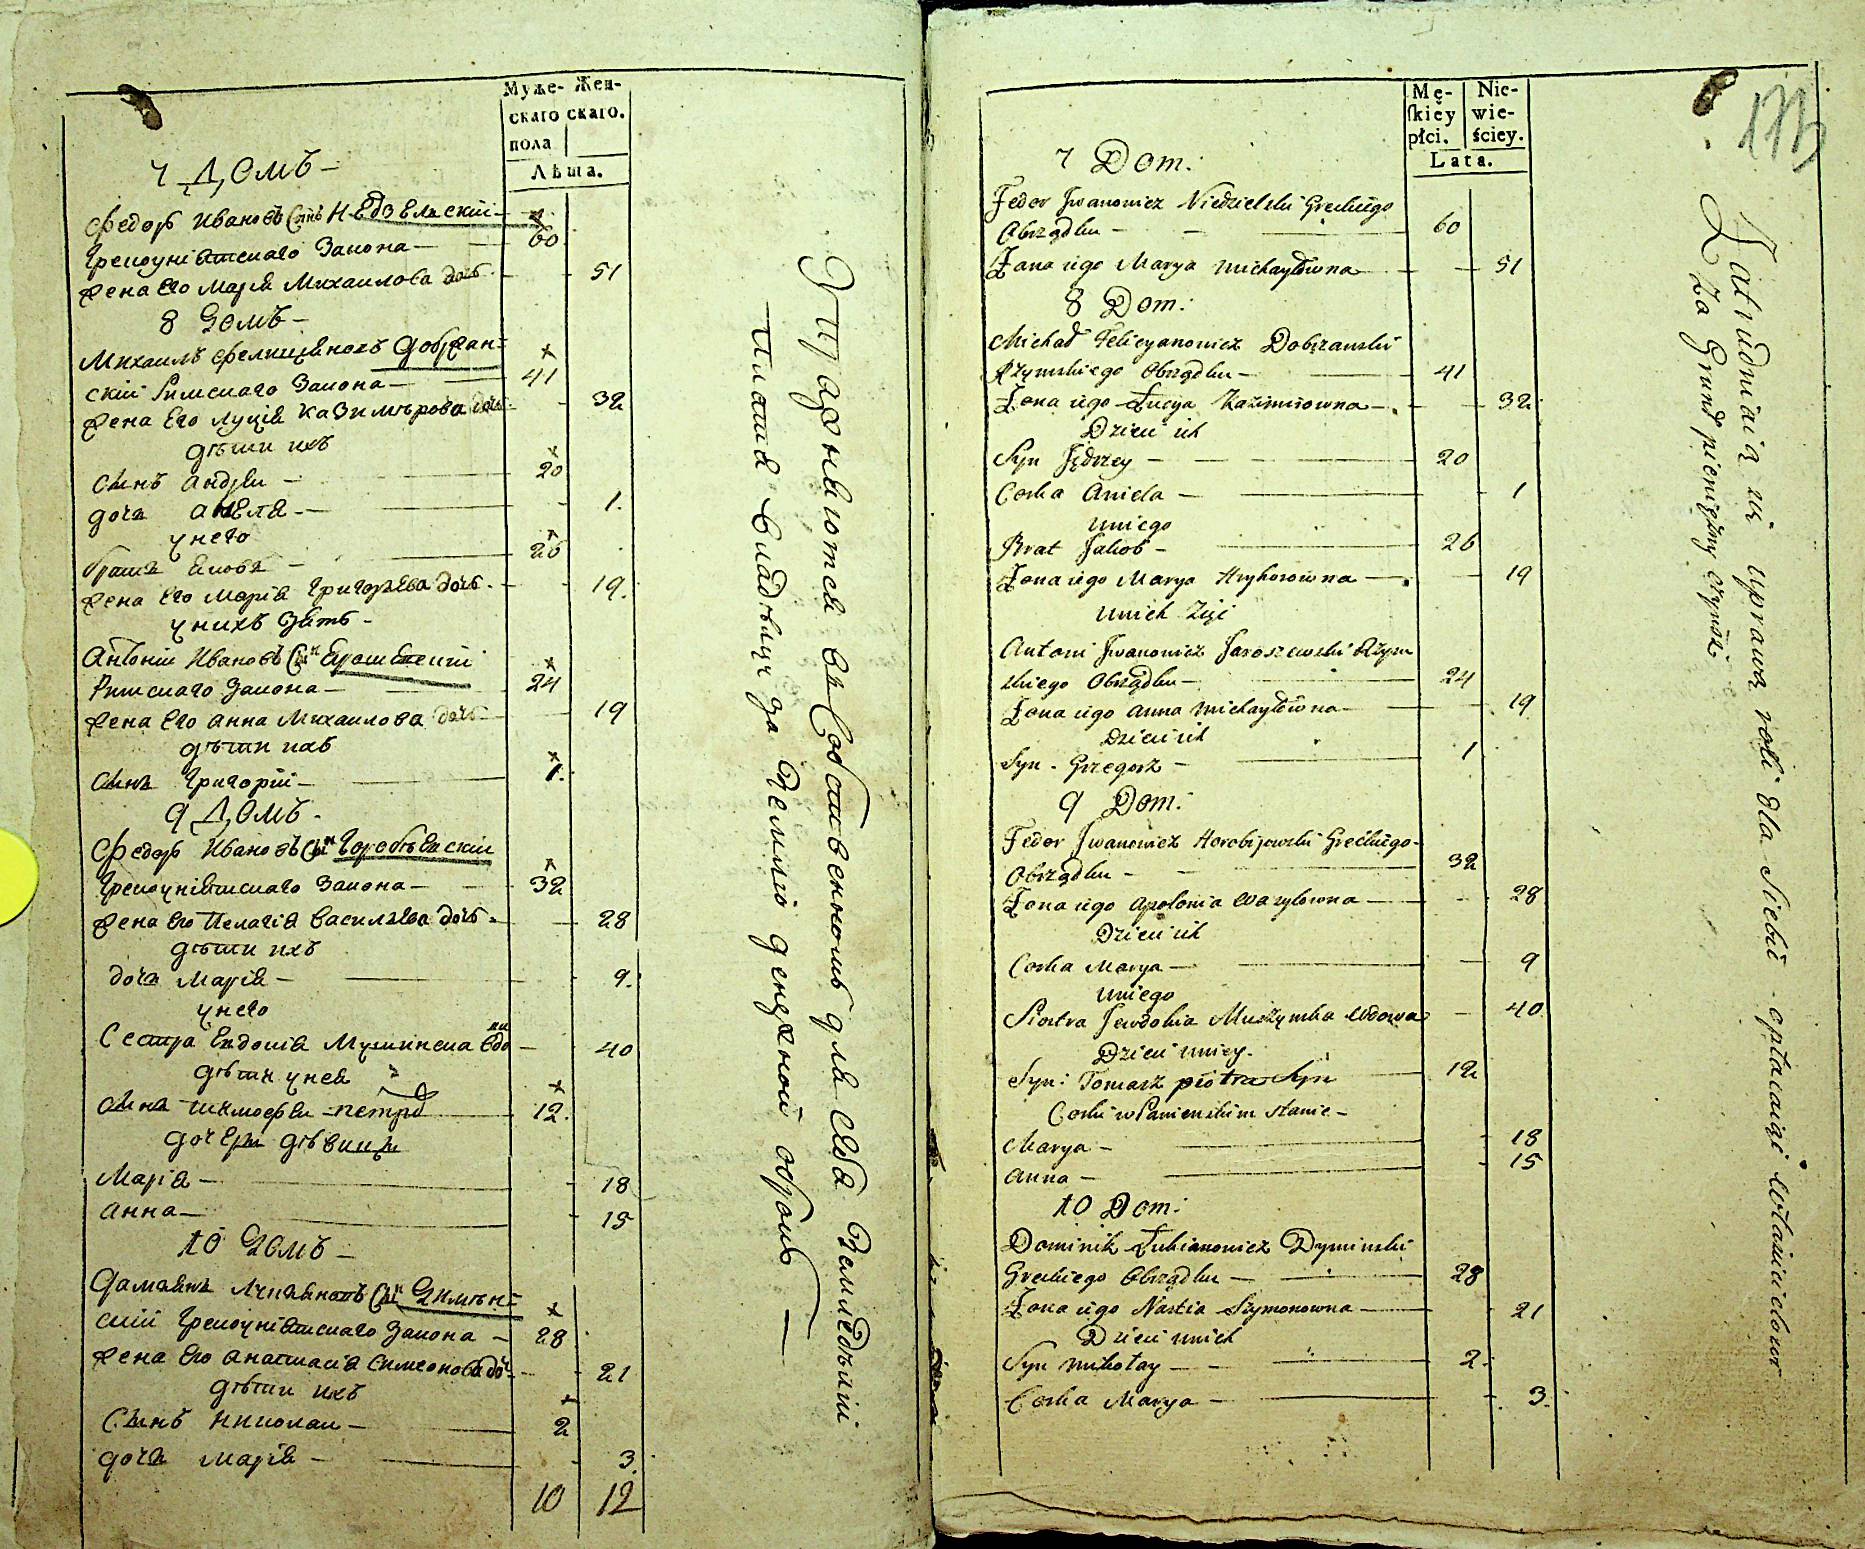 Муже-
скаго
пола
Жен-
скаго.
Лѣта.
7 Домъ
Федоръ Ивановъ Сынъ Недзельскій
Грекоуніятскаго Закона 60
Жена Его Марія Михаилова дочь 51
8 Домъ
Михаилъ Фелиціяновъ Добржан-
скій Римскаго Закона 41
Жена Его Луція Казимѣрова дочь 32
дѣти ихъ
Сынъ Андрей 20
дочь Анеля 1.
у него
братъ Яковъ 26
Жена Его Марія Григорьева дочь 19.
у нихъ Зять
Антоній Ивановъ Сынъ Ерошевскій
Римскаго Закона 24
Жена Его Анна Михаилова дочь 19
дѣти ихъ
Сынъ Григорій 1.
9 Домъ
Федоръ Ивановъ Сынъ Горобіевскій
Грекоуніятскаго Закона 32
Жена Его Пелагія Васильева дочь 28
дѣти ихъ
дочь Марія 9.
у него
Сестра Евдокія 40
дѣти у нея
Сынъ Тимофей Петръ 12.
дочери дѣвицы
Марія 18
Анна 15
10 Домъ
Дамянъ Сынъ Димѣн-
скій Грекоуніятскаго Закона 28
Жена Его Анастасія Симеонова дочь 21
дѣти ихъ
Сынъ Николай 2
дочь Марія 3
10 12
Упражняются въ Собственномъ для себя Земледѣліи
Платя Владѣльцу за Землю денежной оброкъ
Mę-
skiey
płci.
Nie-
wie-
ściey.
Lata.
7 Dom:
Fedor Jwanowicz Niedzielski Greckiego
Obrządku 60
Żona iego Marya Michayłówna 51
8 Dom:
Michał Felicyanowicz Dobrzanski
Rzymskiego Obrządku 41
Żona iego Łucya Kazimirowna 32
Dzieci ich
Syn Jędrzey 20
Corka Aniela 1
u niego
Brat Jakob 26
Żona iego Marya Hryhorowna 19
u nich Zięć
Antoni Jwanowicz Jaroszewski Rzym
skiego Obrządku 24
Żona iego Anna Michayłówna 19
Dzieci ich
Syn Grzegorz 1
9 Dom:
Fedor Jwanowicz Horobijowski Greckiego
Obrządku 32
Żona iego Apolonia Wasylowna 28
Dzieci ich
Corka Marya 9
u niego
Siostra Jewdokia Muszynska Wdowa 40
Dzieci u niey
Syn: Tomasz piotra Syn 12
Corki w Panienskim stanie
Marya 18
Anna 15
10 Dom:
Dominik Łukianowicz Dyminski
Greckiego Obrządku 28
Żona iego Nastia Szymonowna 21
Dzieci u nich
Syn Mikołay 2
Corka Marya 3.
Zatrudniaią się uprawą roli dla siebie opłacaiąc właścicielowi
Za Grunt pieniężny czynsz